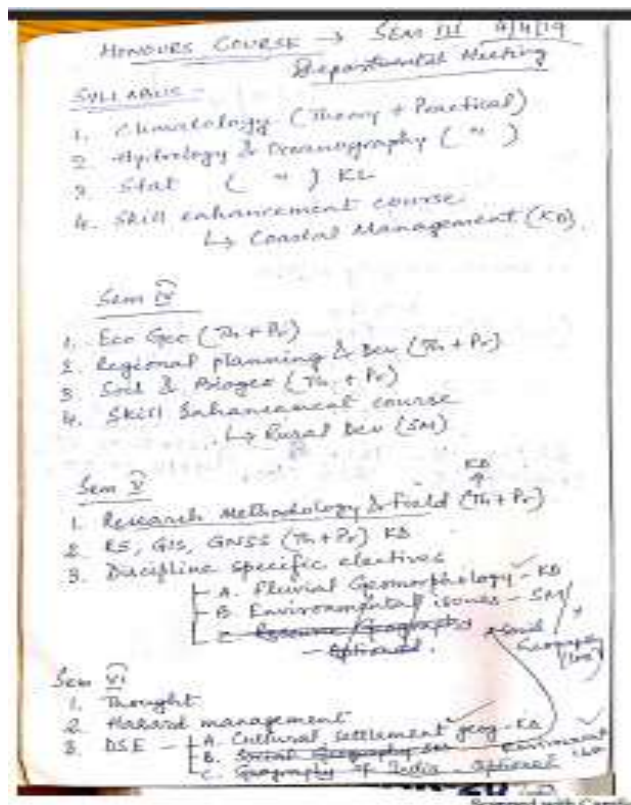 HONOURS COURSE → SEM III 4/4/19
Departmental Meeting
SYLLABUS -
1. Climatology (Theory + Practical)
2. Hydrology & Oceanography ( " )
3. Stat ( " ) KL
4. Skill enhancement course
↳ Coastal Management (KB).
Sem IV
1. Eco Geo (Th + Pr)
2. Regional planning & Dev (Th + Pr)
3. Soil & Biogeo (Th + Pr)
4. Skill Enhancement course
↳ Rural Dev (SM)
Sem V
KB
1. Research Methodology & Field (Th + Pr)
2. RS, GIS, GNSS (Th + Pr) KB
3. Discipline specific electives
A. Fluvial Geomorphology - KB
B. Environmental issues - SM
C. Resource Geography
- Optional.
Social
Geography
Sem VI
1. Thought
2. Hazard management
3. DSE - A. Cultural settlement geog - KB
B. Social Geography SM Environment
C. Geography of India - Optional